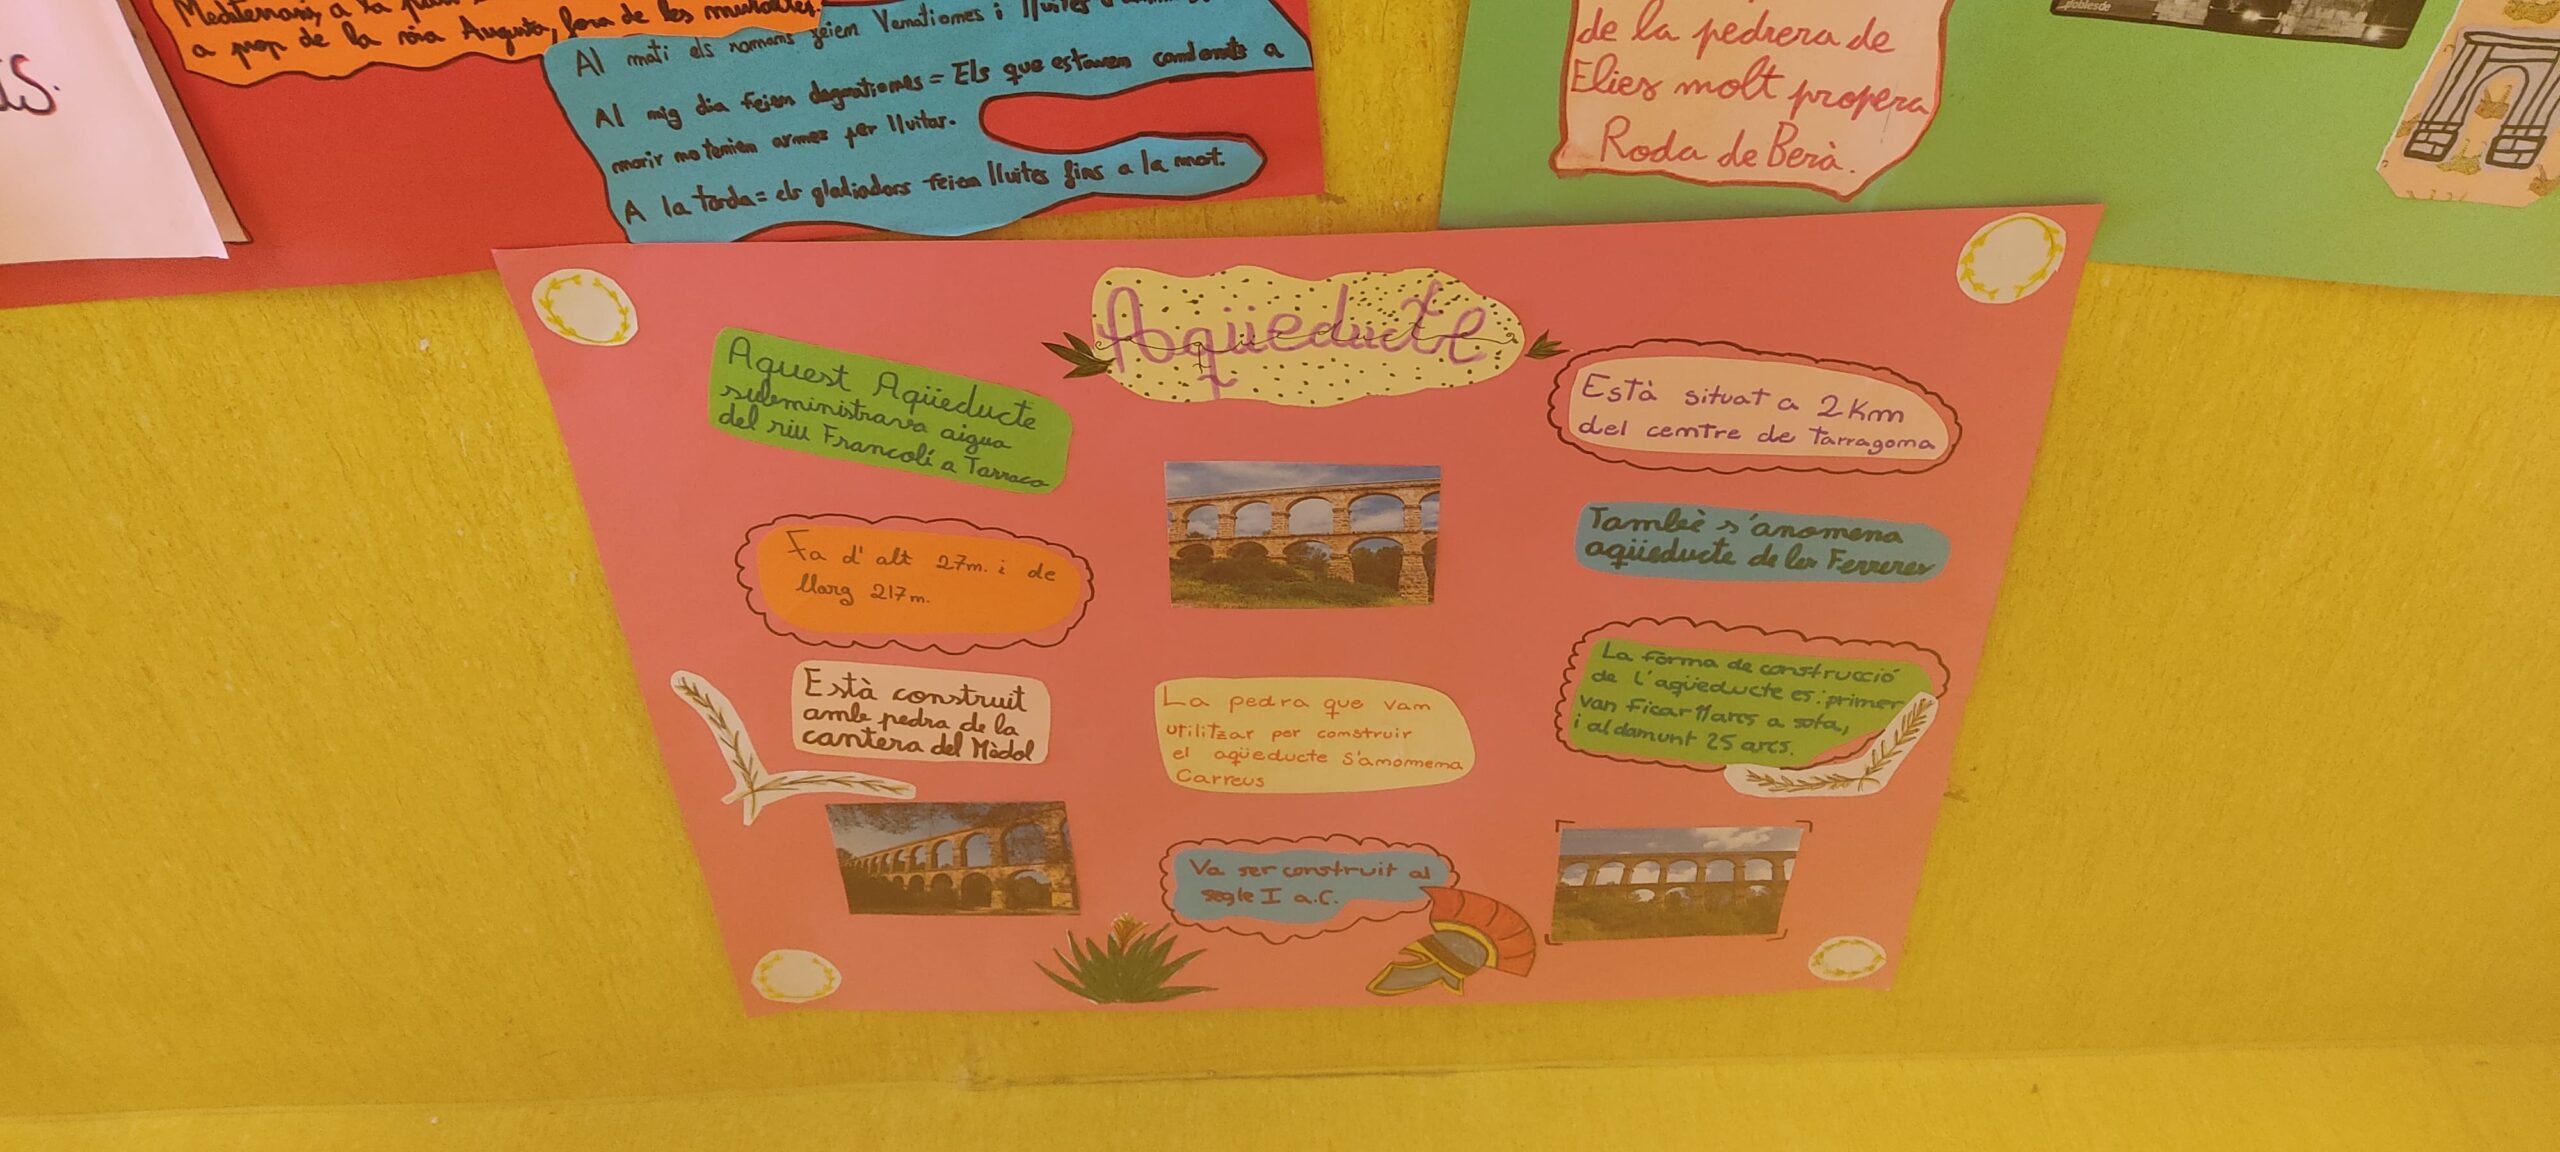 is.
a prop de la via Augusta, fora de les muralles.
Al mati els romans feien Venationes i lluites
Al mig dia feien dagnationes = Els que estaven condemats a
morir no tenien armes per lluitar.
A la tarda = els gladiadors feien lluites fins a la mort.
de la pedrera de
Elies molt propera
Roda de Berà.
poblesde
Aqüeducte
Aquest Aqüeducte
subministrava aigua
del riu Francolí a Tarraco
Està situat a 2Km
del centre de Tarragona
Fa d'alt 27m. i de
llarg 217m.
També s'anomena
aqüeducte de les Ferreres
Està construit
amb pedra de la
cantera del Mèdol
La pedra que van
utilitzar per construir
el aqüeducte s'anomena
Carreus
La forma de construcció
de l'aqüeducte es: primer
van ficar 11 arcs a sota,
i al damunt 25 arcs.
Va ser construit al
segle I a.C.